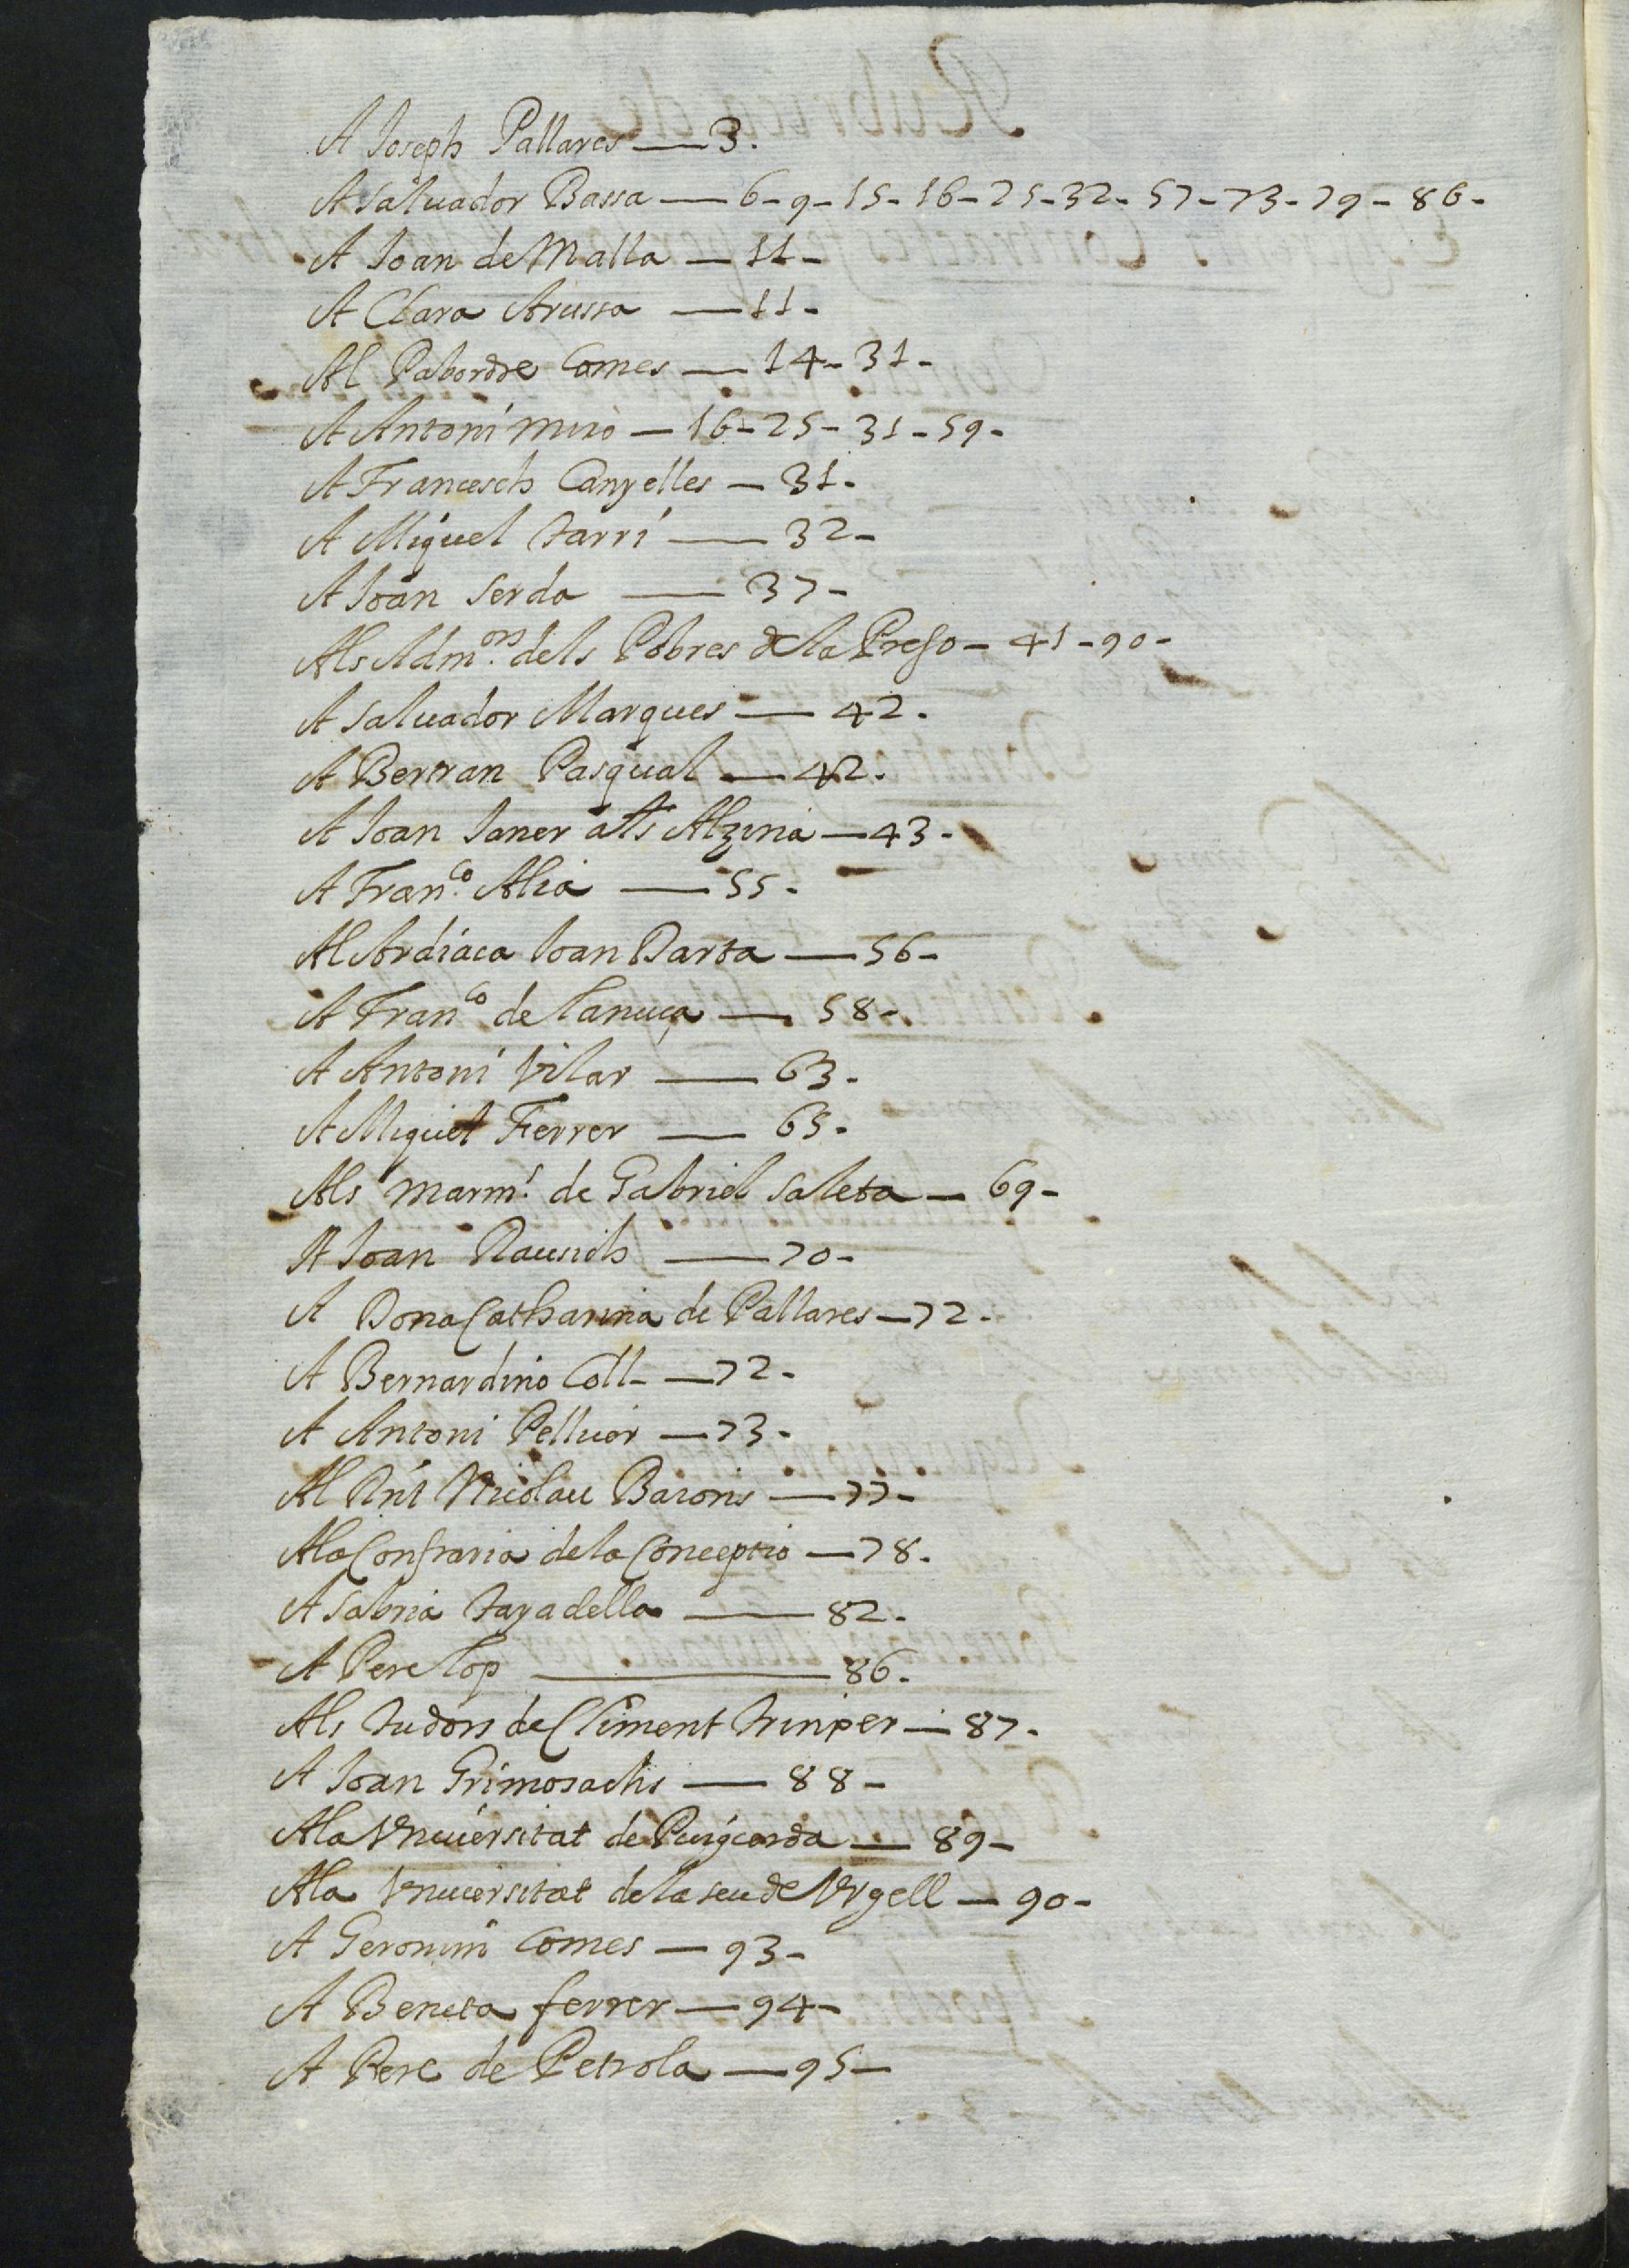 A Joseph Pallares — 3.
A Saluador Bassa — 6 - 9 - 15 - 16 - 25 - 32 - 57 - 73 - 79 - 86 -
A Joan de Malla — 11 -
A Clara Arussa — 11 -
Al Pabordre Comes — 14 - 31 -
A Antoni Miro — 16 - 25 - 31 - 59 -
A Francesch Canyelles — 31.
A Miquel Tarri — 32 -
A Joan Serda — 37 -
Als Adm.ors dels Pobres de la Preso — 41 - 90 -
A Saluador Marques — 42.
A Bertran Pasqual — 42.
A Joan Janer als Alzina — 43 -
A Fran.co Alia — 55 -
Al Ardiaca Joan Darta — 56 -
A Fran.co de Lanuça — 58 -
A Antoni Vilar — 63 -
A Miquel Ferrer — 65 -
Als marm.s de Gabriel Saleta — 69 -
A Joan Rausich — 70 -
A Dona Catharina de Pallares — 72 -
A Bernardino Coll — 72 -
A Antoni Pellicer — 73 -
Al Rnt Nicolau Barons — 77 -
Ala Confraria de la Conceptio — 78 -
A Sabria Taradella — 82 -
A Pere Lop — 86 -
Als Tudors de Climent Trinxer — 87 -
A Joan Grimosachs — 88 -
Ala Vniuersitat de Puigcerda — 89 -
Ala Vniuersitat de la seu de Vrgell — 90 -
A Geronim Comes — 93 -
A Beneta ferrer — 94 -
A Pere de Petrola — 95 —